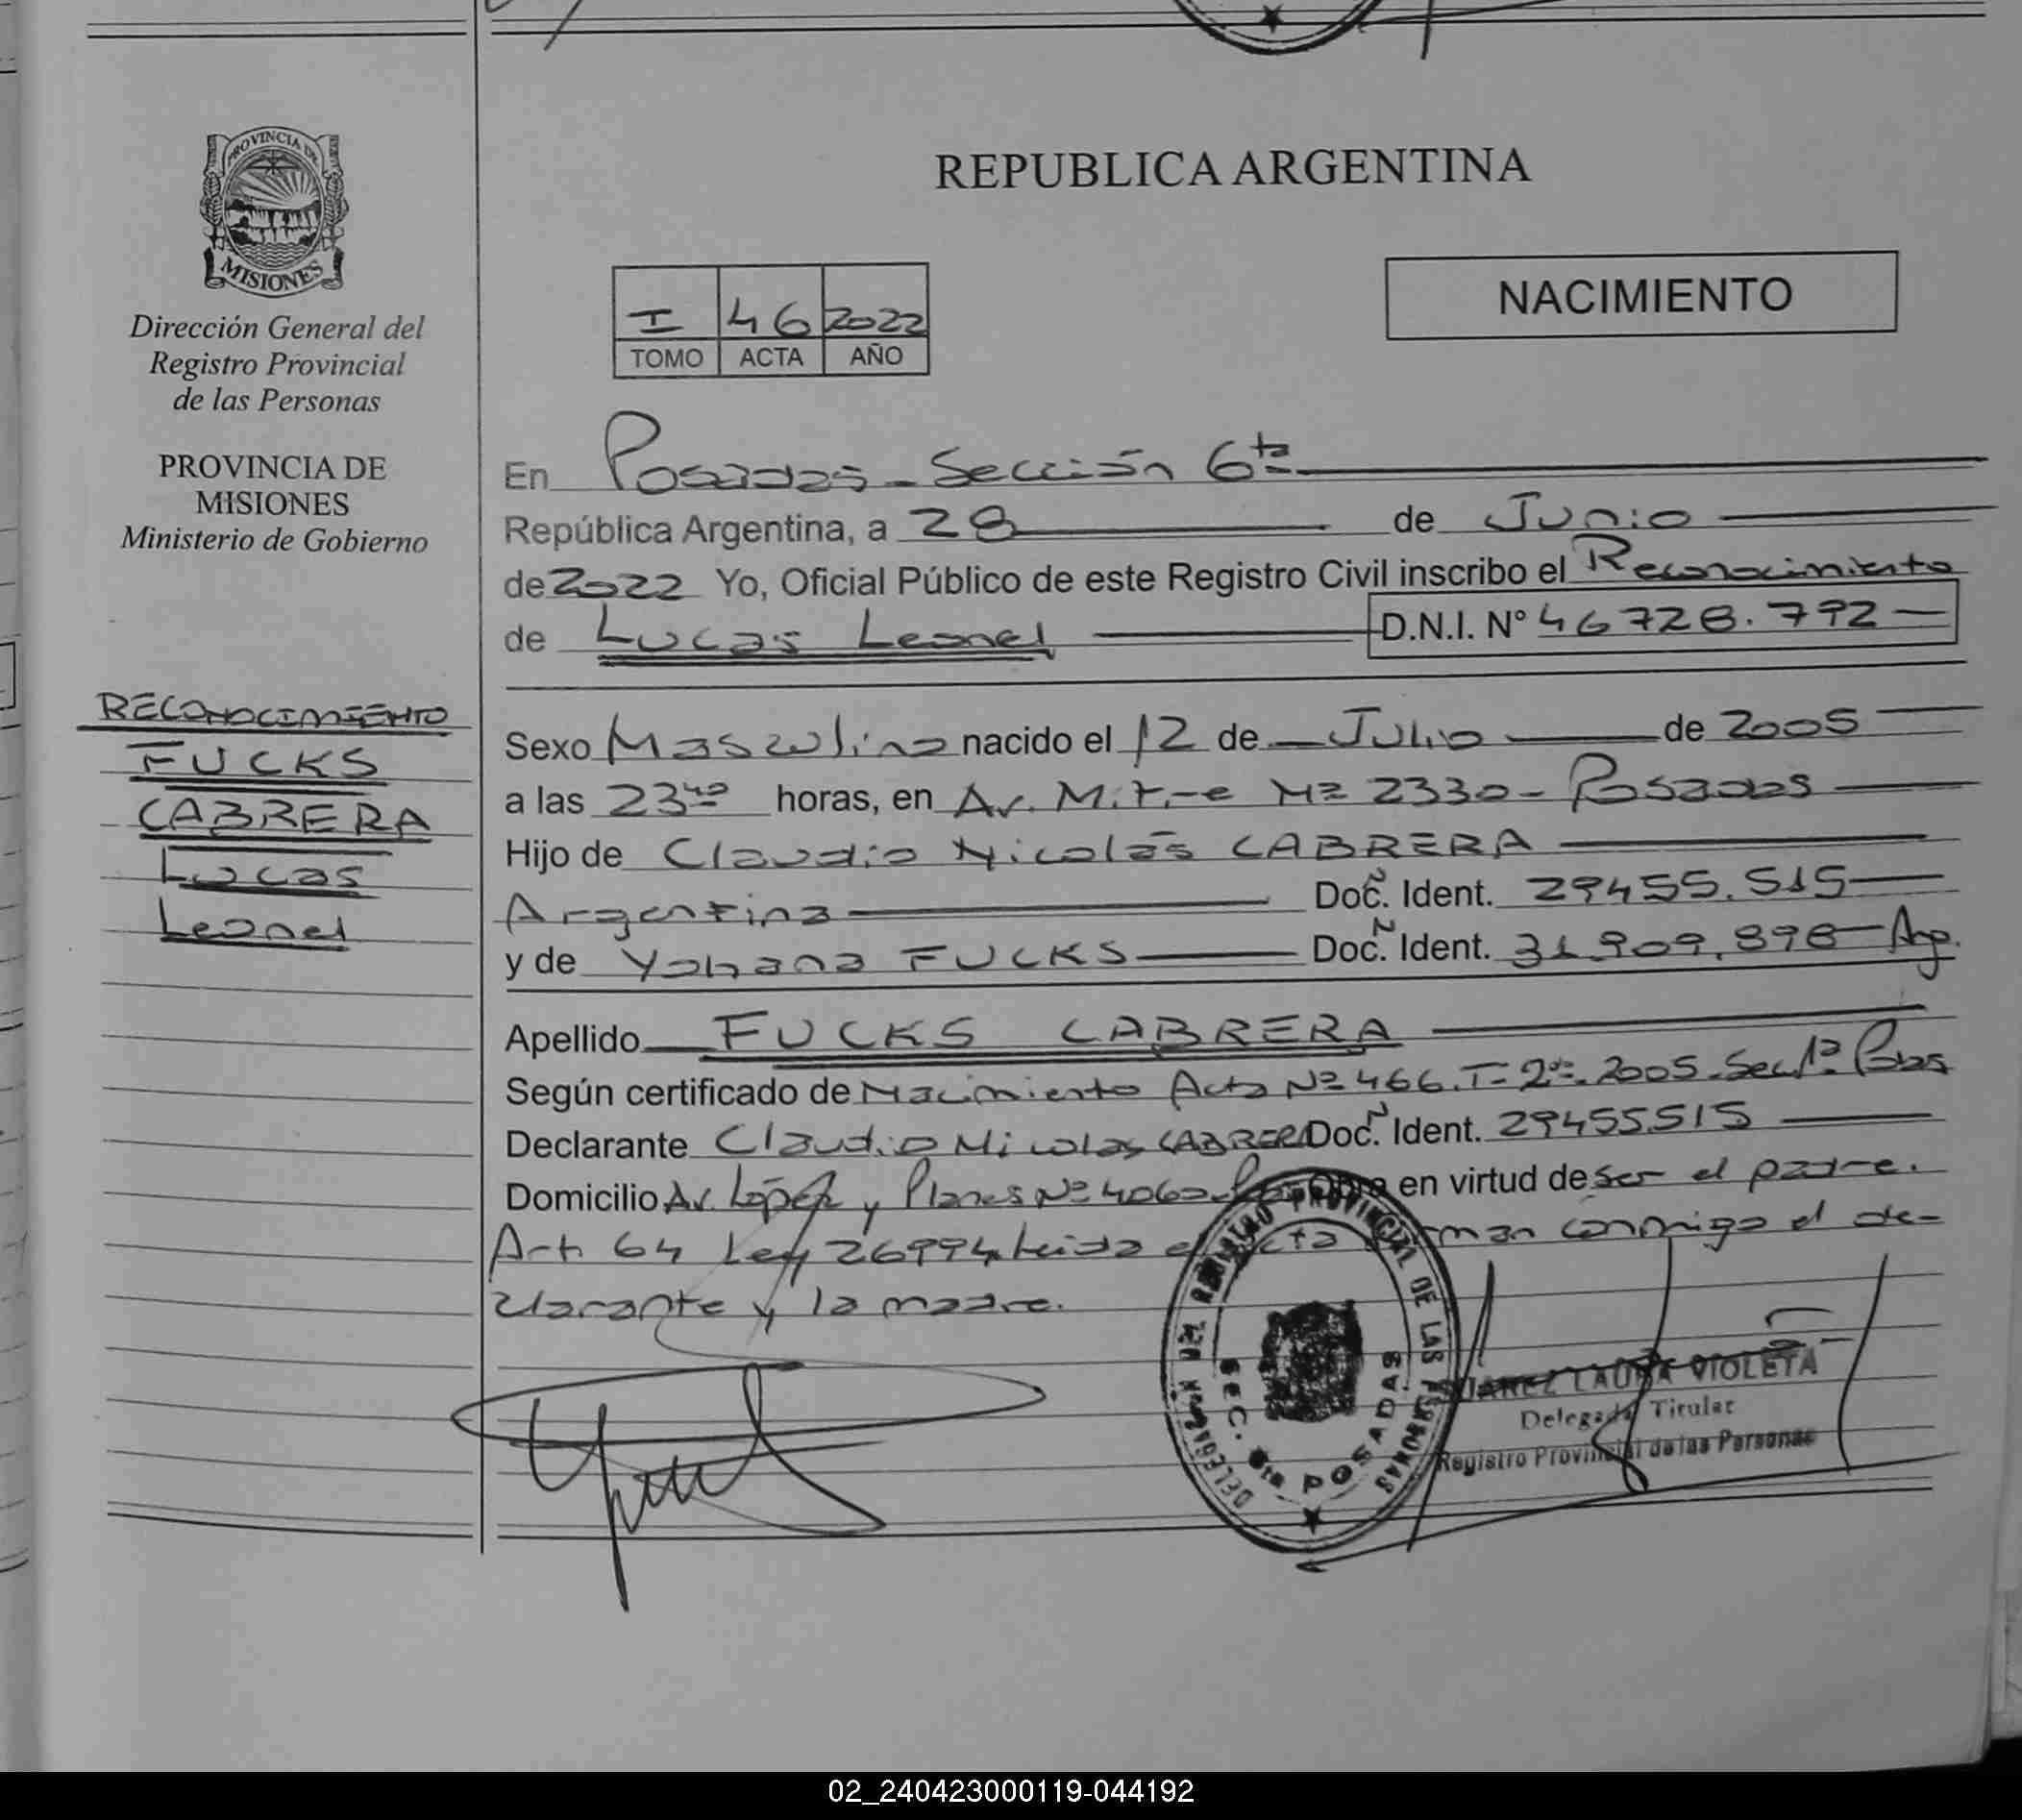 REPUBLICA ARGENTINA
PROVINCIA DE
MISIONES
Dirección General del
Registro Provincial
de las Personas
PROVINCIA DE
MISIONES
Ministerio de Gobierno
RECONOCIMIENTO
FUCKS
CABRERA
Lucas
Leonel
I 46 2022
TOMO ACTA AÑO
NACIMIENTO
En Posadas - Sección 6ta
República Argentina, a 28 de Junio
de 2022 Yo, Oficial Público de este Registro Civil inscribo el Reconocimiento
de Lucas Leonel D.N.I. N° 46728.792
Sexo Masculino nacido el 12 de Julio de 2005
a las 23 40 horas, en Av. Mitre Nº 2330 - Posadas
Hijo de Claudio Nicolás CABRERA
Argentina Doc. Ident. 29455.515
y de Yohana FUCKS Doc. Ident. 31.909.898 Arg.
Apellido FUCKS CABRERA
Según certificado de Nacimiento Acta Nº 466. T- 2º. 2005. Sec 1ª Pdas
Declarante Claudio Nicolas CABRERA Doc. Ident. 29455515
Domicilio Av. López y Planes Nº 4060 en virtud de ser el padre.
Art. 64 Ley 26994 Leida el acta firman conmigo el de-
clarante y la madre.
DELEGACION DEL REGISTRO PROVINCIAL DE LAS PERSONAS
SEC. 6ta POSADAS
SUAREZ LAURA VIOLETA
Delegada Titular
Registro Provincial de las Personas
02_240423000119-044192